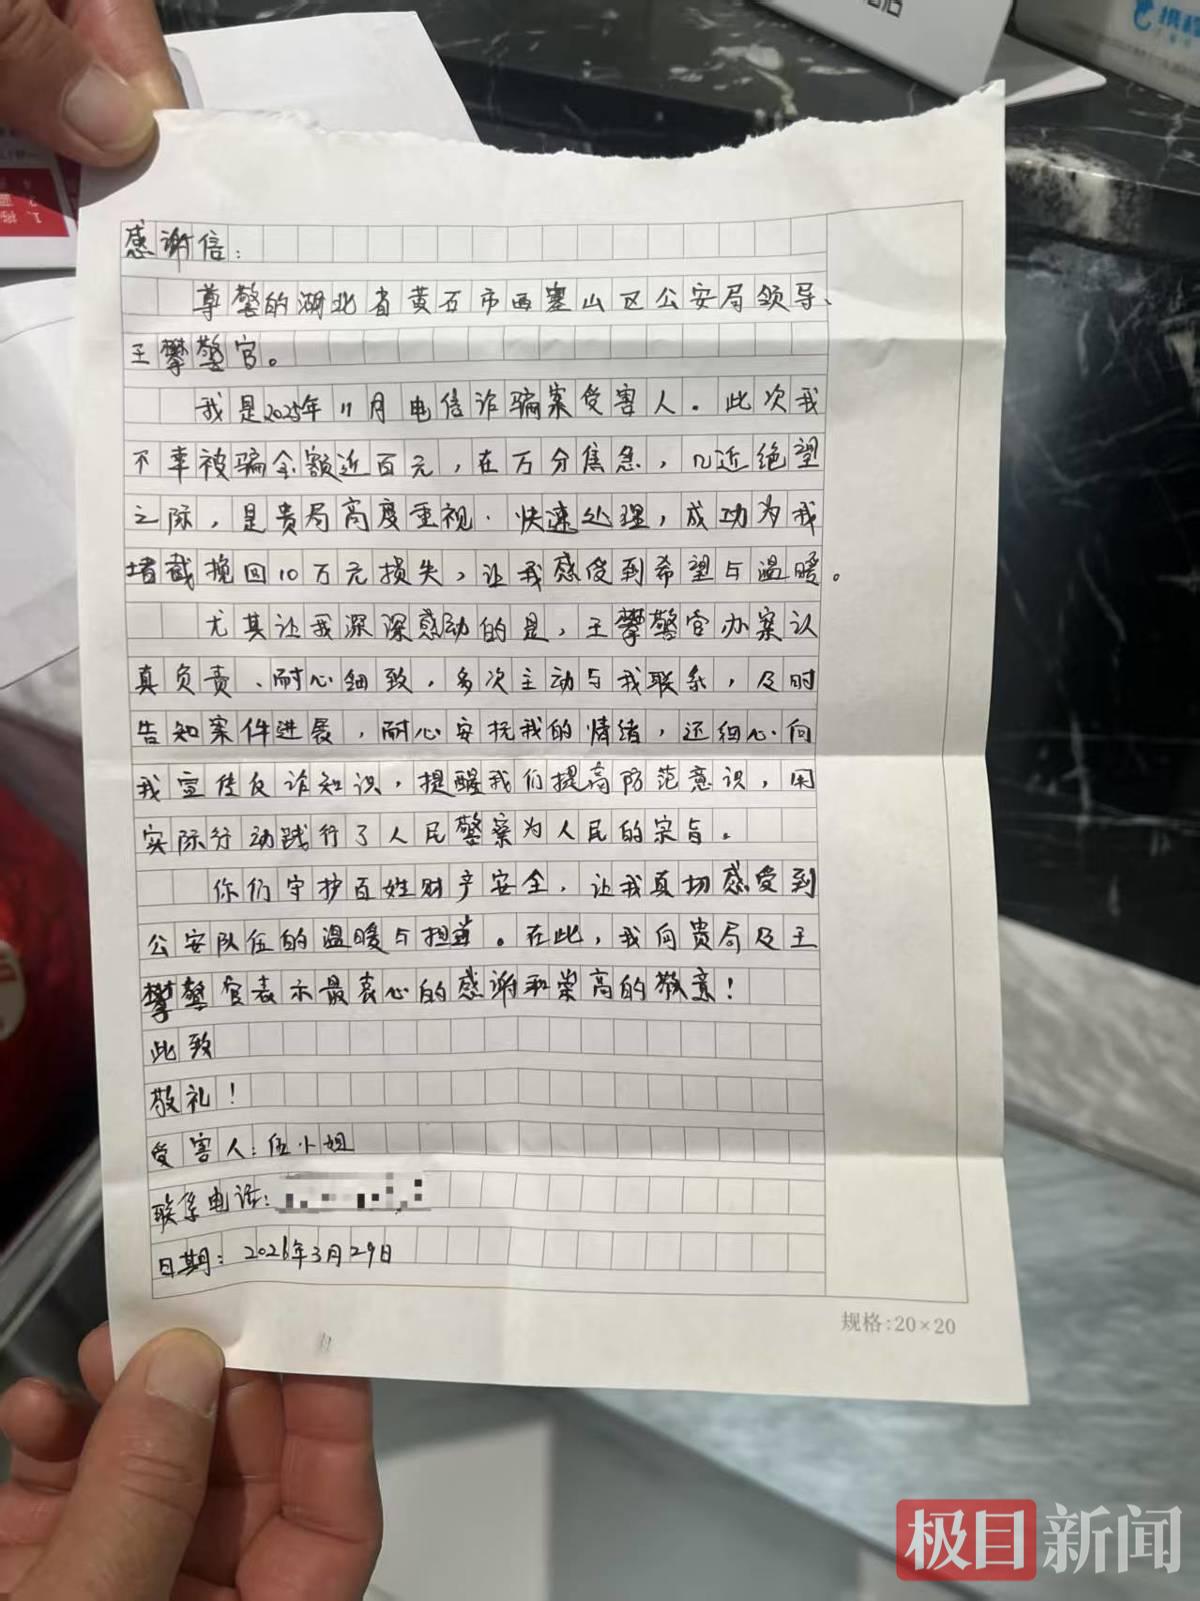 感谢信：
尊警的湖北省黄石市西塞山区公安局领导、
王攀警官。
我是2025年11月电信诈骗案受害人。此次我
不幸被骗金额近百元，在万分焦急，几近绝望
之际，是贵局高度重视．快速处理，成功为我
堵截挽回10万元损失，让我感受到希望与温暖。
尤其让我深深感动的是，王攀警官办案认
真负责、耐心细致，多次主动与我联系，及时
告知案件进展，耐心安抚我的情绪，还细心向
我宣传反诈知识，提醒我们提高防范意识，用
实际行动践行了人民警察为人民的宗旨。
你们守护百姓财产安全，让我真切感受到
公安队伍的温暖与担当。在此，我向贵局及王
攀警官表示最衷心的感谢和崇高的敬意！
此致
敬礼！
受害人：伍小姐
联系电话：
日期：2026年3月29日
规格:20×20
极目新闻
携程